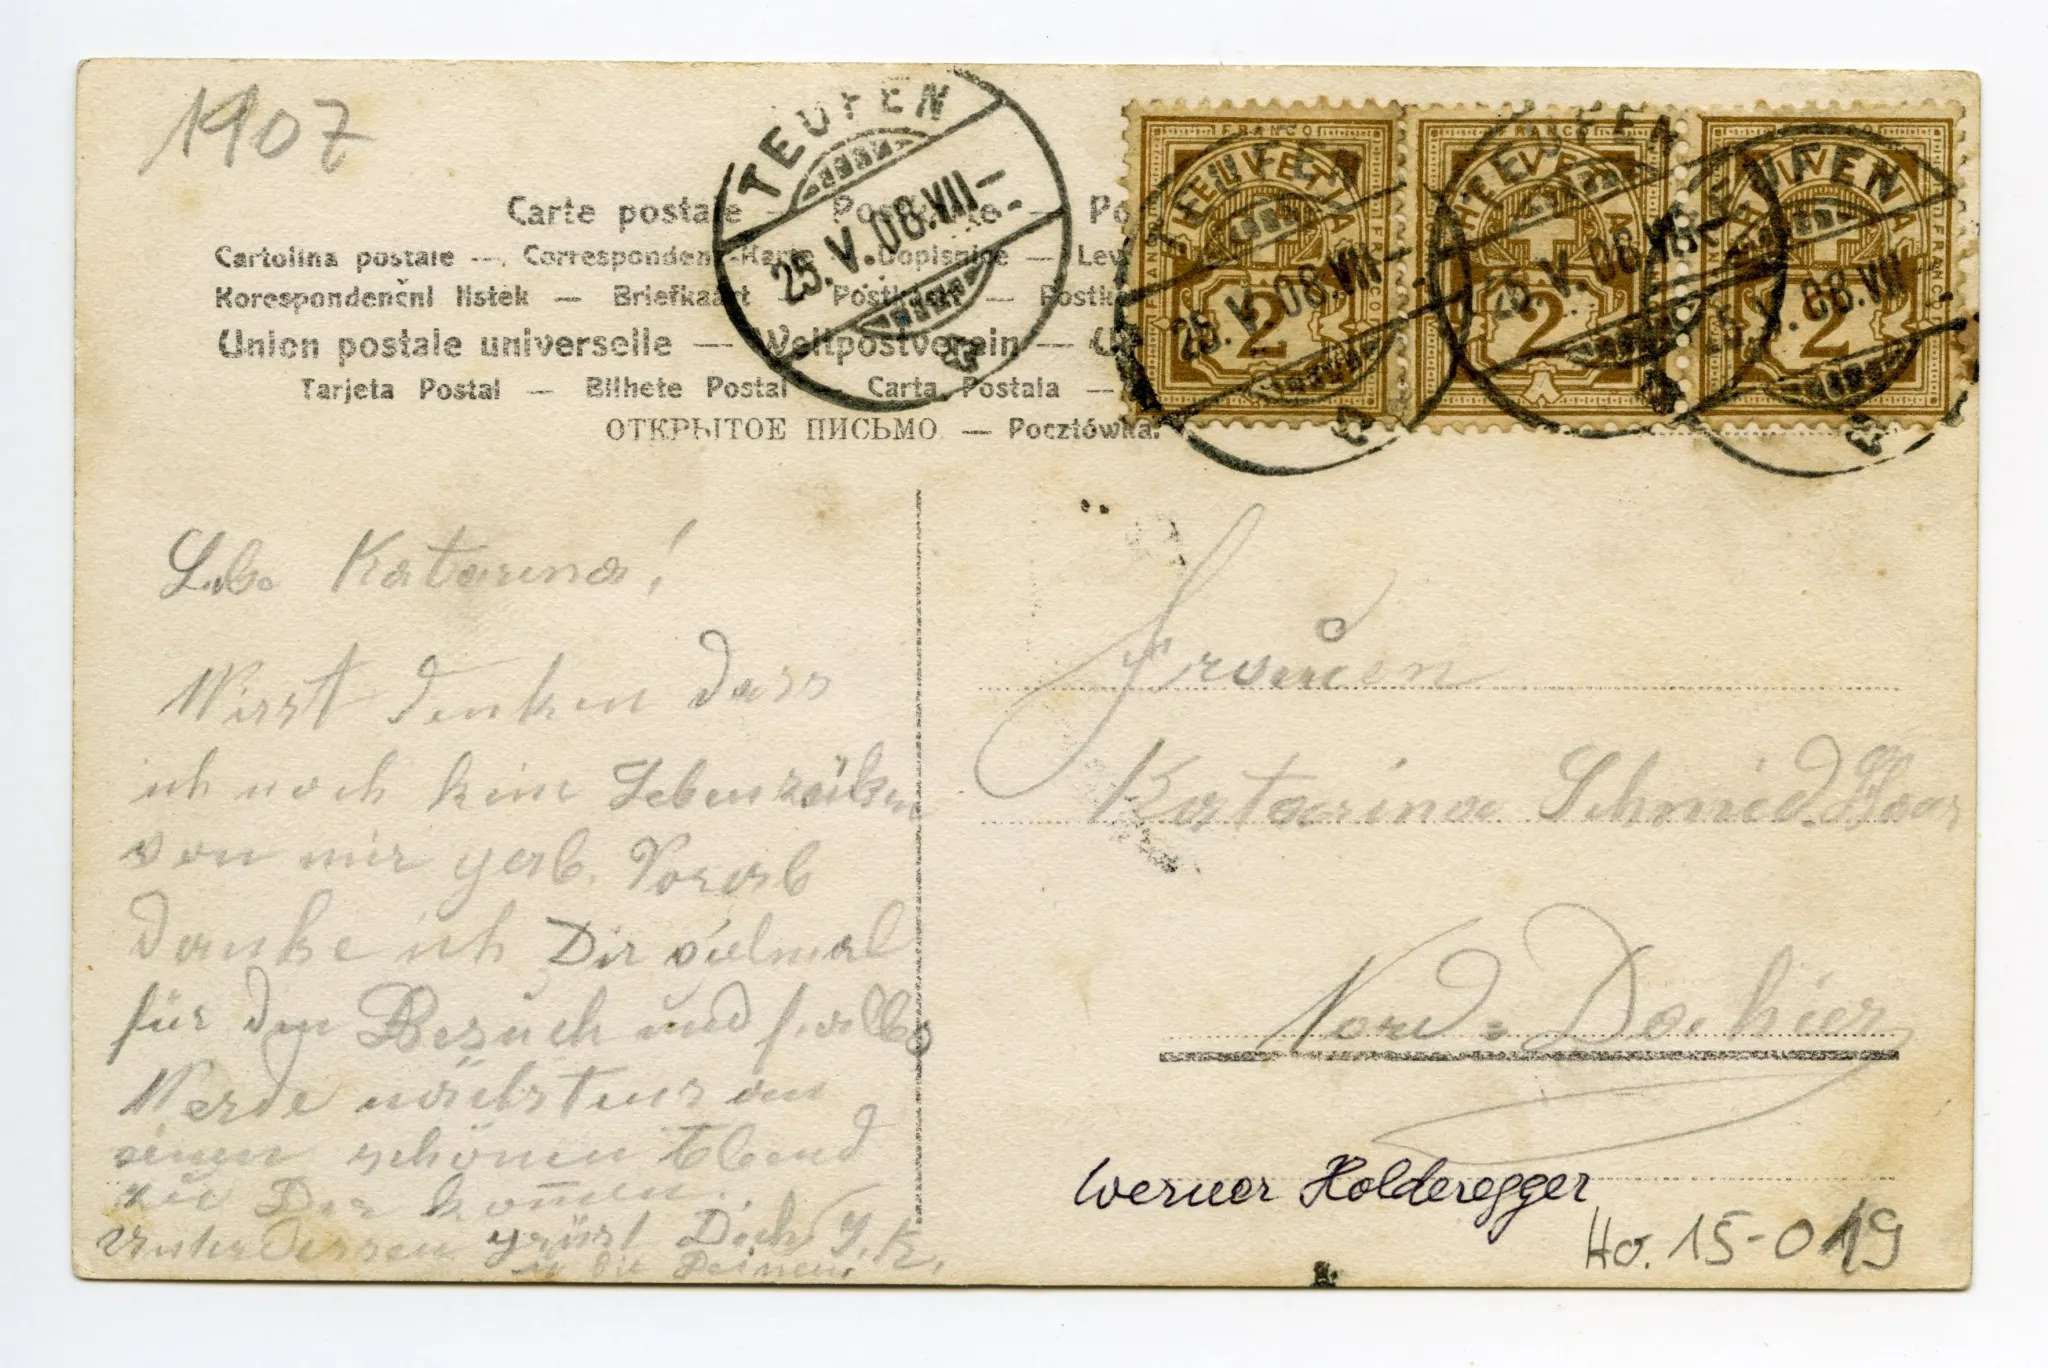 1907
TEUFEN
25.V.08.VII–
Carte postale —
Cartolina postale — Correspondenz-Karte — Dopisnice — Lev
Korespondenční listek — Briefkaart — Postkarte —
Union postale universelle — Weltpostverein —
Tarjeta Postal — Bilhete Postal — Carta Postala —
ОТКРЫТОЕ ПИСЬМО — Pocztówka.
FRANCO FRANCO FRANCO
HELVETIA HELVETIA HELVETIA
2 2 2
TEUFEN TEUFEN TEUFEN
25.V.08.VII– 25.V.08.VII– 25.V.08.VII
Lb. Katarina!
Wirst denken dass
ich noch kein Lebenzeichen
von mir gab. Vorab
danke ich Dir vielmal
für den Besuch und
Werde nächstens an
einen schönen Abend
zu Dir kom̅en.
Unterdessen grüsst Dich J. K.
u die Deinen.
Katarina Schmid
Nord
Werner Holderegger
Ho. 15-019